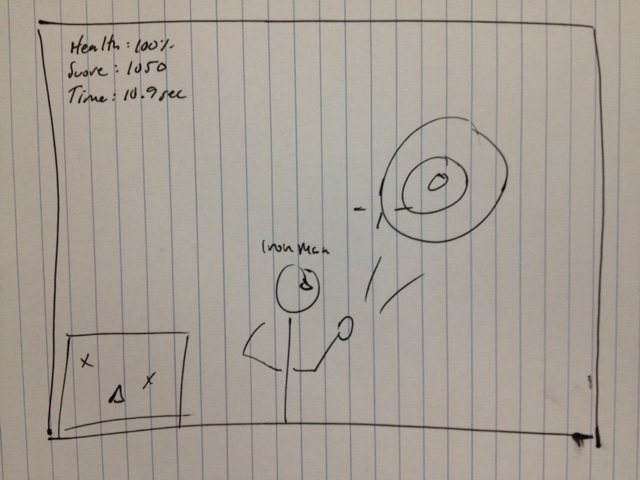 Health: 100%
Score: 1050
Time: 10.9 sec
Iron Man